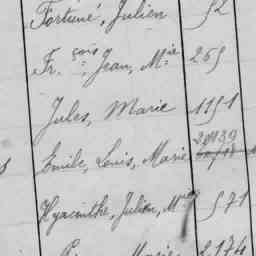 Fortuné, Julien 52
Fr.çois, Jean, M.ie 255
Jules, Marie 1151
Emile, Louis, Marie 2083.9
Hyacinthe, Julien, M. 571
Marie 2.174